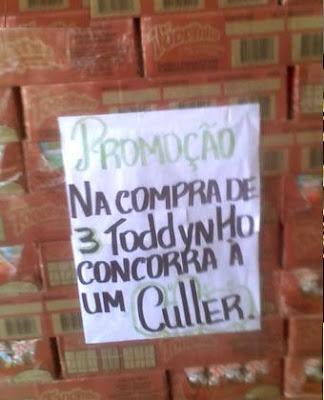 PROMOÇÃO
NA COMPRA DE
3 ToddyNHO
CONCORRA À
UM CullER.